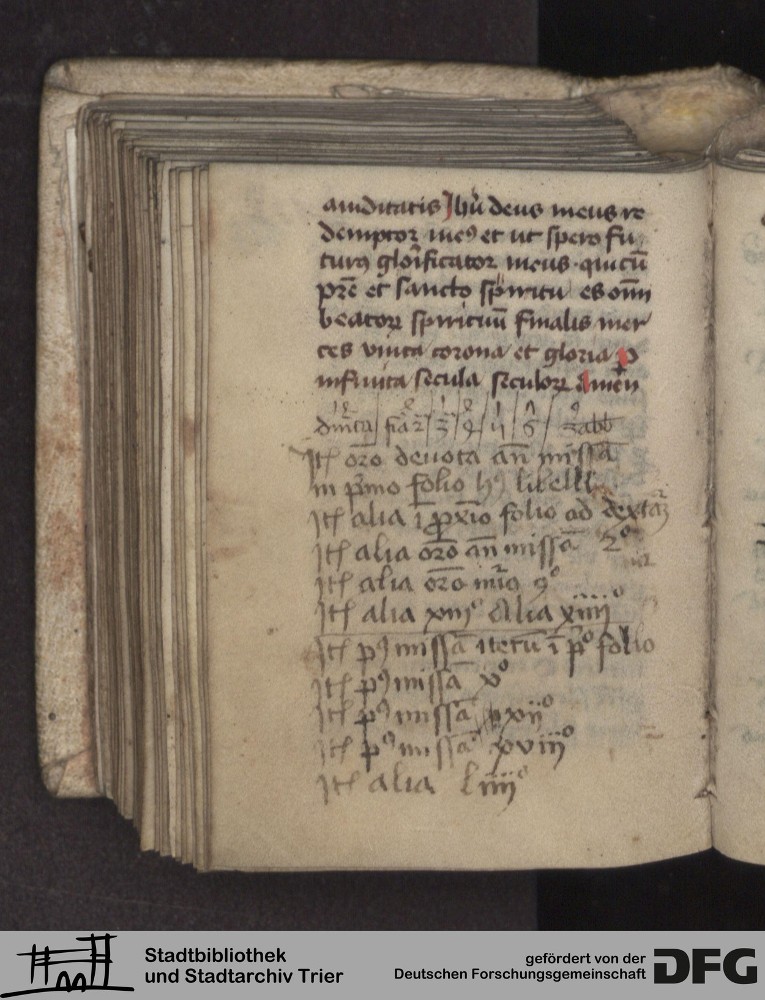 auiditatis Jhū deus meus re
demptor meꝰ et ut spero fu
turꝰ glorificator meus · qui cū
pr̄e et sancto spiritu es om̄
beatoꝝ spirituū finalis mer
ces vnica corona et gloria p
infinita secula seculoꝝ amen
dn̄ica fia 2ª 3 4 5 6 sabb
Itē or̄o deuota an̄ missā
in p̄mo folio hꝰ libelli
Itē alia ī pxīo folio ad dextā
Itē alia or̄o an̄ missā 2º
Itē alia or̄o 9º
Itē alia xiijº Alia xiiijº
Itē pꝰ missā iterū ī pº folio
Itē pꝰ missā vº
Itē pꝰ missā xijº
Itē pꝰ missā xviijº
Itē alia liiijº
Stadtbibliothek
und Stadtarchiv Trier
gefördert von der
Deutschen Forschungsgemeinschaft
DFG